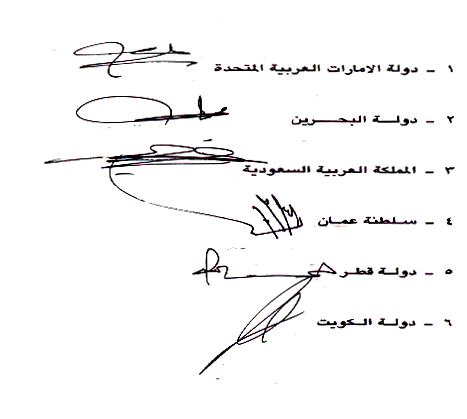 ١ - دولة الامارات العربية المتحدة
٢ - دولـة البحـــرين
٣ - المملكة العربية السعودية
٤ - سـلطنة عمـان
٥ - دولـة قطـر
٦ - دولـة الـكويت